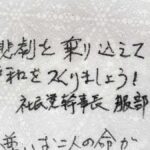 悲劇を乗り込えて
平和をつくりましょう!
社民党幹事長 服部
尊い二人の命が